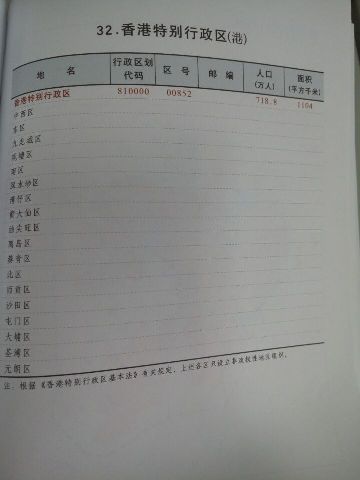 32.香港特别行政区(港)
地 名 行政区划代码 区 号 邮 编 人口(万人) 面积(平方千米)
香港特别行政区 810000 00852 718.8 1104
中西区
东区
九龙城区
观塘区
南区
深水埗区
湾仔区
黄大仙区
油尖旺区
离岛区
葵青区
北区
西贡区
沙田区
屯门区
大埔区
荃湾区
元朗区
注：根据《香港特别行政区基本法》有关规定，上述各区只设立非政权性地区组织。